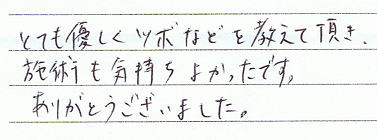 とても優しくツボなどを教えて頂き、
施術も気持ちよかったです。
ありがとうございました。